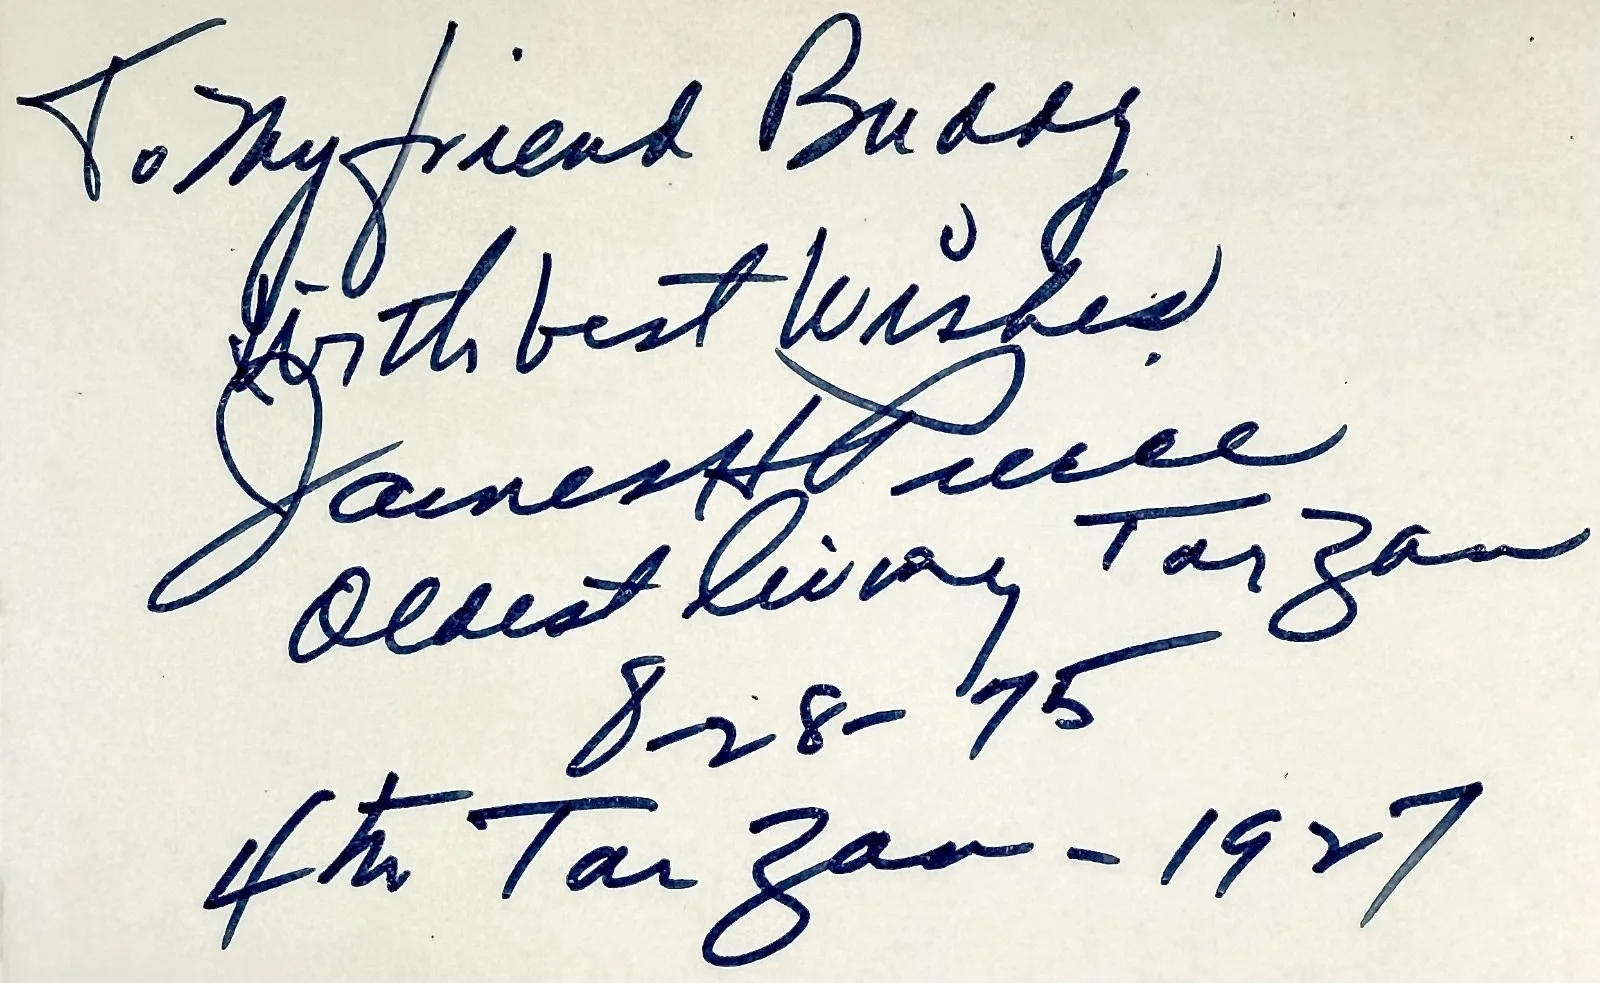 To My friend Buddy
With best Wishes.
James H Pierce
Oldest living Tarzan
8-28-75
4th Tarzan - 1927